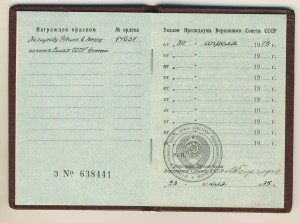 Награжден орденом № ордена
„За службу Родине в Воору-
женных Силах СССР" степени 14657
З № 638441
Указом Президиума Верховного Совета СССР
от „30" апреля 1975 г.
от „ " 19 г.
от „ " 19 г.
от „ " 19 г.
от „ " 19 г.
от „ " 19 г.
от „ " 19 г.
от „ " 19 г.
Секретарь Президиума
Верховного Совета СССР
1975 г.